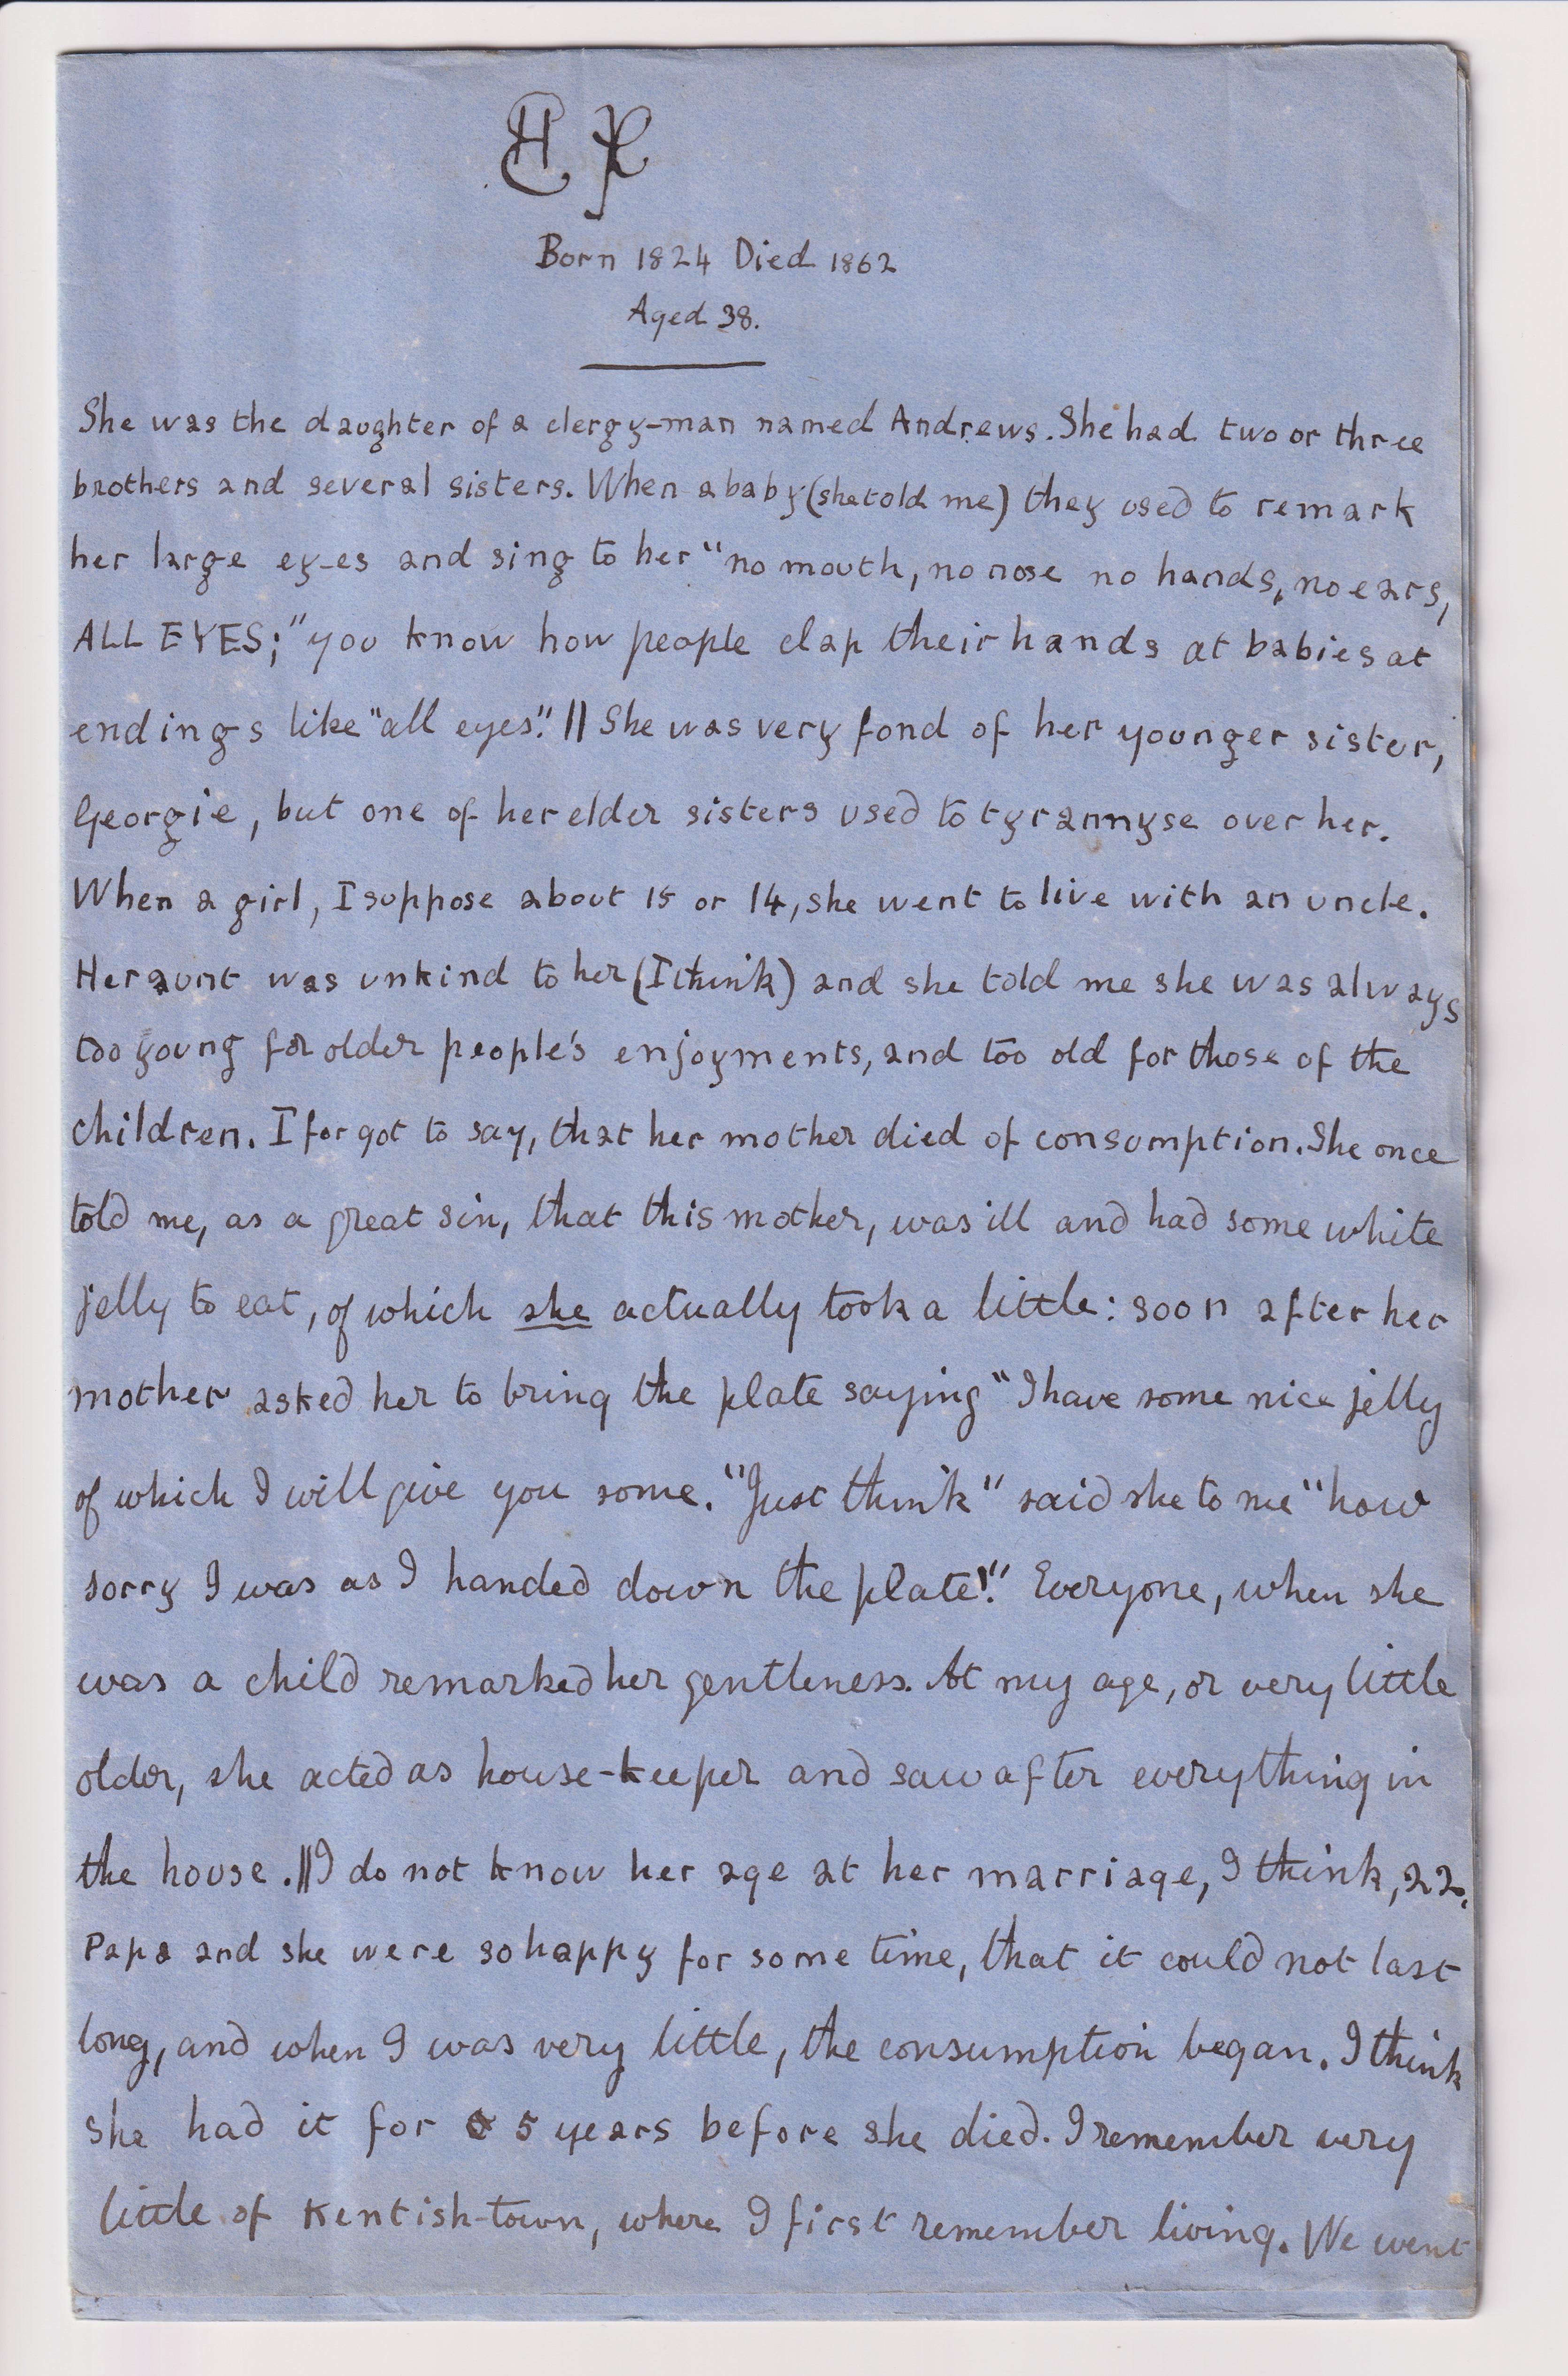 Born 1824 Died 1862
Aged 38.
She was the daughter of a clergy-man named Andrews. She had two or three
brothers and several sisters. When a baby (she told me) they used to remark
her large ey-es and sing to her "no mouth, no nose no hands, no ears,
ALL EYES;" you know how people clap their hands at babies at
endings like "all eyes". || She was very fond of her younger sister,
Georgie, but one of her elder sisters used to tyrannyse over her.
When a girl, I suppose about 15 or 14, she went to live with an uncle.
Her aunt was unkind to her (I think) and she told me she was always
too young for older people's enjoyments, and too old for those of the
children. I forgot to say, that her mother died of consumption. She once
told me, as a great sin, that this mother, was ill and had some white
jelly to eat, of which she actually took a little: soon after her
mother asked her to bring the plate saying "I have some nice jelly
of which I will give you some. "Just think" said she to me "how
sorry I was as I handed down the plate!" Everyone, when she
was a child remarked her gentleness. At my age, or very little
older, she acted as house-keeper and saw after everything in
the house. || I do not know her age at her marriage, I think, 22.
Papa and she were so happy for some time, that it could not last
long, and when I was very little, the consumption began. I think
she had it for 5 years before she died. I remember very
little of Kentish-town, where I first remember living. We went